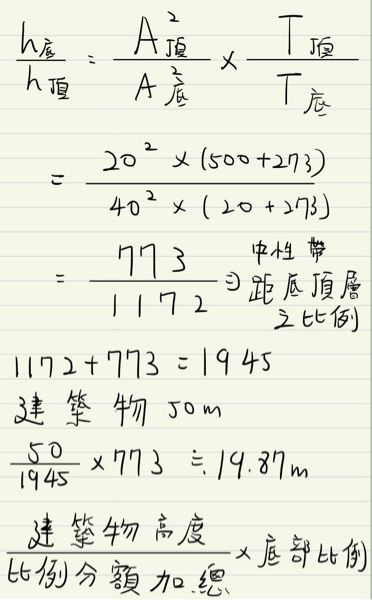 h底/h頂 = A²頂/A²底 × T頂/T底
= 20² × (500+273)/40² × (20+273)
= 773/1172 ⇒ 中性帶
距底頂層
之比例
1172+773 = 1945
建築物 50m
50/1945 × 773 ≒ 19.87m
建築物高度/比例分額加總 × 底部比例